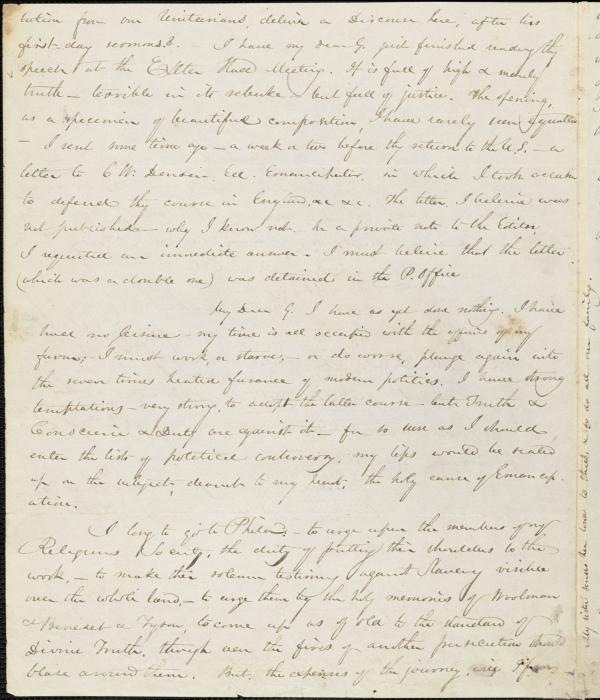 tation from our Unitarians, deliver a Discourse here, after his
first day sermons? — I have my dear G. just finished reading thy
speech at the Exeter Hall Meeting. It is full of high & manly
truth — terrible in its rebuke — but full of justice. The opening,
as a specimen of beautiful composition, I have rarely seen equalled
— I sent some time ago — a week or two before thy return to the U.S. — a
letter to C W. Denison, Ed. Emancipator, in which I took occasion
to defend thy course in England, &c &c. The letter, I believe was
not published — why I know not. In a private note to the Editor
I requested an immediate answer. I must believe that the letter
(which was a double one) was detained in the P. Office
My Dear G. I have as yet done nothing. I have
had no leisure — my time is all occupied with the affairs of my
farm; — I must work or starve; — or do worse, plunge again into
the seven times heated furnace of modern politics. I have strong
temptations — very strong, to adopt the latter course — but Truth &
Conscience & Duty are against it — for so sure as I should
enter the lists of political controversy, my lips would be sealed
up on the subject, dearest to my heart, the holy cause of Emancip-
ation.
I long to go to Philad. — to urge upon the members of my
Religious Society, the duty of putting their shoulders to the
work, — to make their solemn testimony against Slavery visible
over the whole land, — to urge them by the holy memories of Woolman
& Benezet & Tyson, to come up as of old to the standard of
Divine Truth, though even the fires of another persecution should
blaze around them. But, the expenses of the journey will
My sister sends her love to thee, & so do all our family.